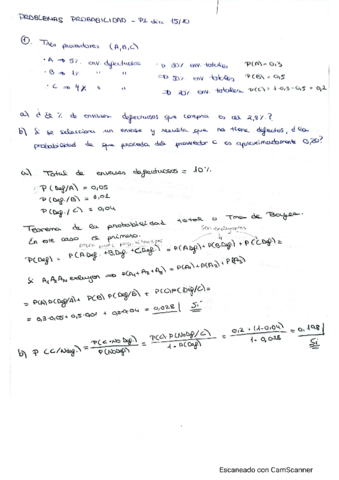 PROBLEMAS PROBABILIDAD - P2 día 15/10
① Tres proveedores (A,B,C)
· A → 5% env. defectuosos · 30% env. totales P(A)=0.3
· B → 1% " " · 50% env. totales P(B)=0,5
· C → 4% " " 20% env. totales P(C)=1-0.3-0,5=0,2
a) ¿el % de envases defectuosos que compra es del 2,8%?
b) Si se selecciona un envase y resulta que no tiene defectos, ¿la
probabilidad de que proceda del proveedor C es aproximadamente 0,20?
a) Total de envases defectuosos = 10%
P(Def/A) = 0,05
P(Def/B) = 0,01
P(Def./C) = 0,04
Teorema de la probabilidad total o Tma de Bayes.
En este caso es primero. Son excluyentes
P(Def) = P(A Def. + B Def. + C Def.) = P(A Def) + P(B Def) + P(C Def) =
Si A₁A₂A₃ excluyen ⇒ P(A₁+A₂+A₃) = P(A₁)+P(A₂)+P(A₃)
= P(A)P(Def/A) + P(B)P(Def/B) + P(C)P(Def/C) =
= 0,3·0,05 + 0,5·0,01 + 0,2·0,04 = 0,028 | Sí
b) P(C/NoDef.) = P(C∩No Def.) / P(No Def) = P(C)·P(NoDef/C) / 1-P(Def) = 0,2·(1-0.04) / 1-0,028 = 0.198 | Sí
Escaneado con CamScanner